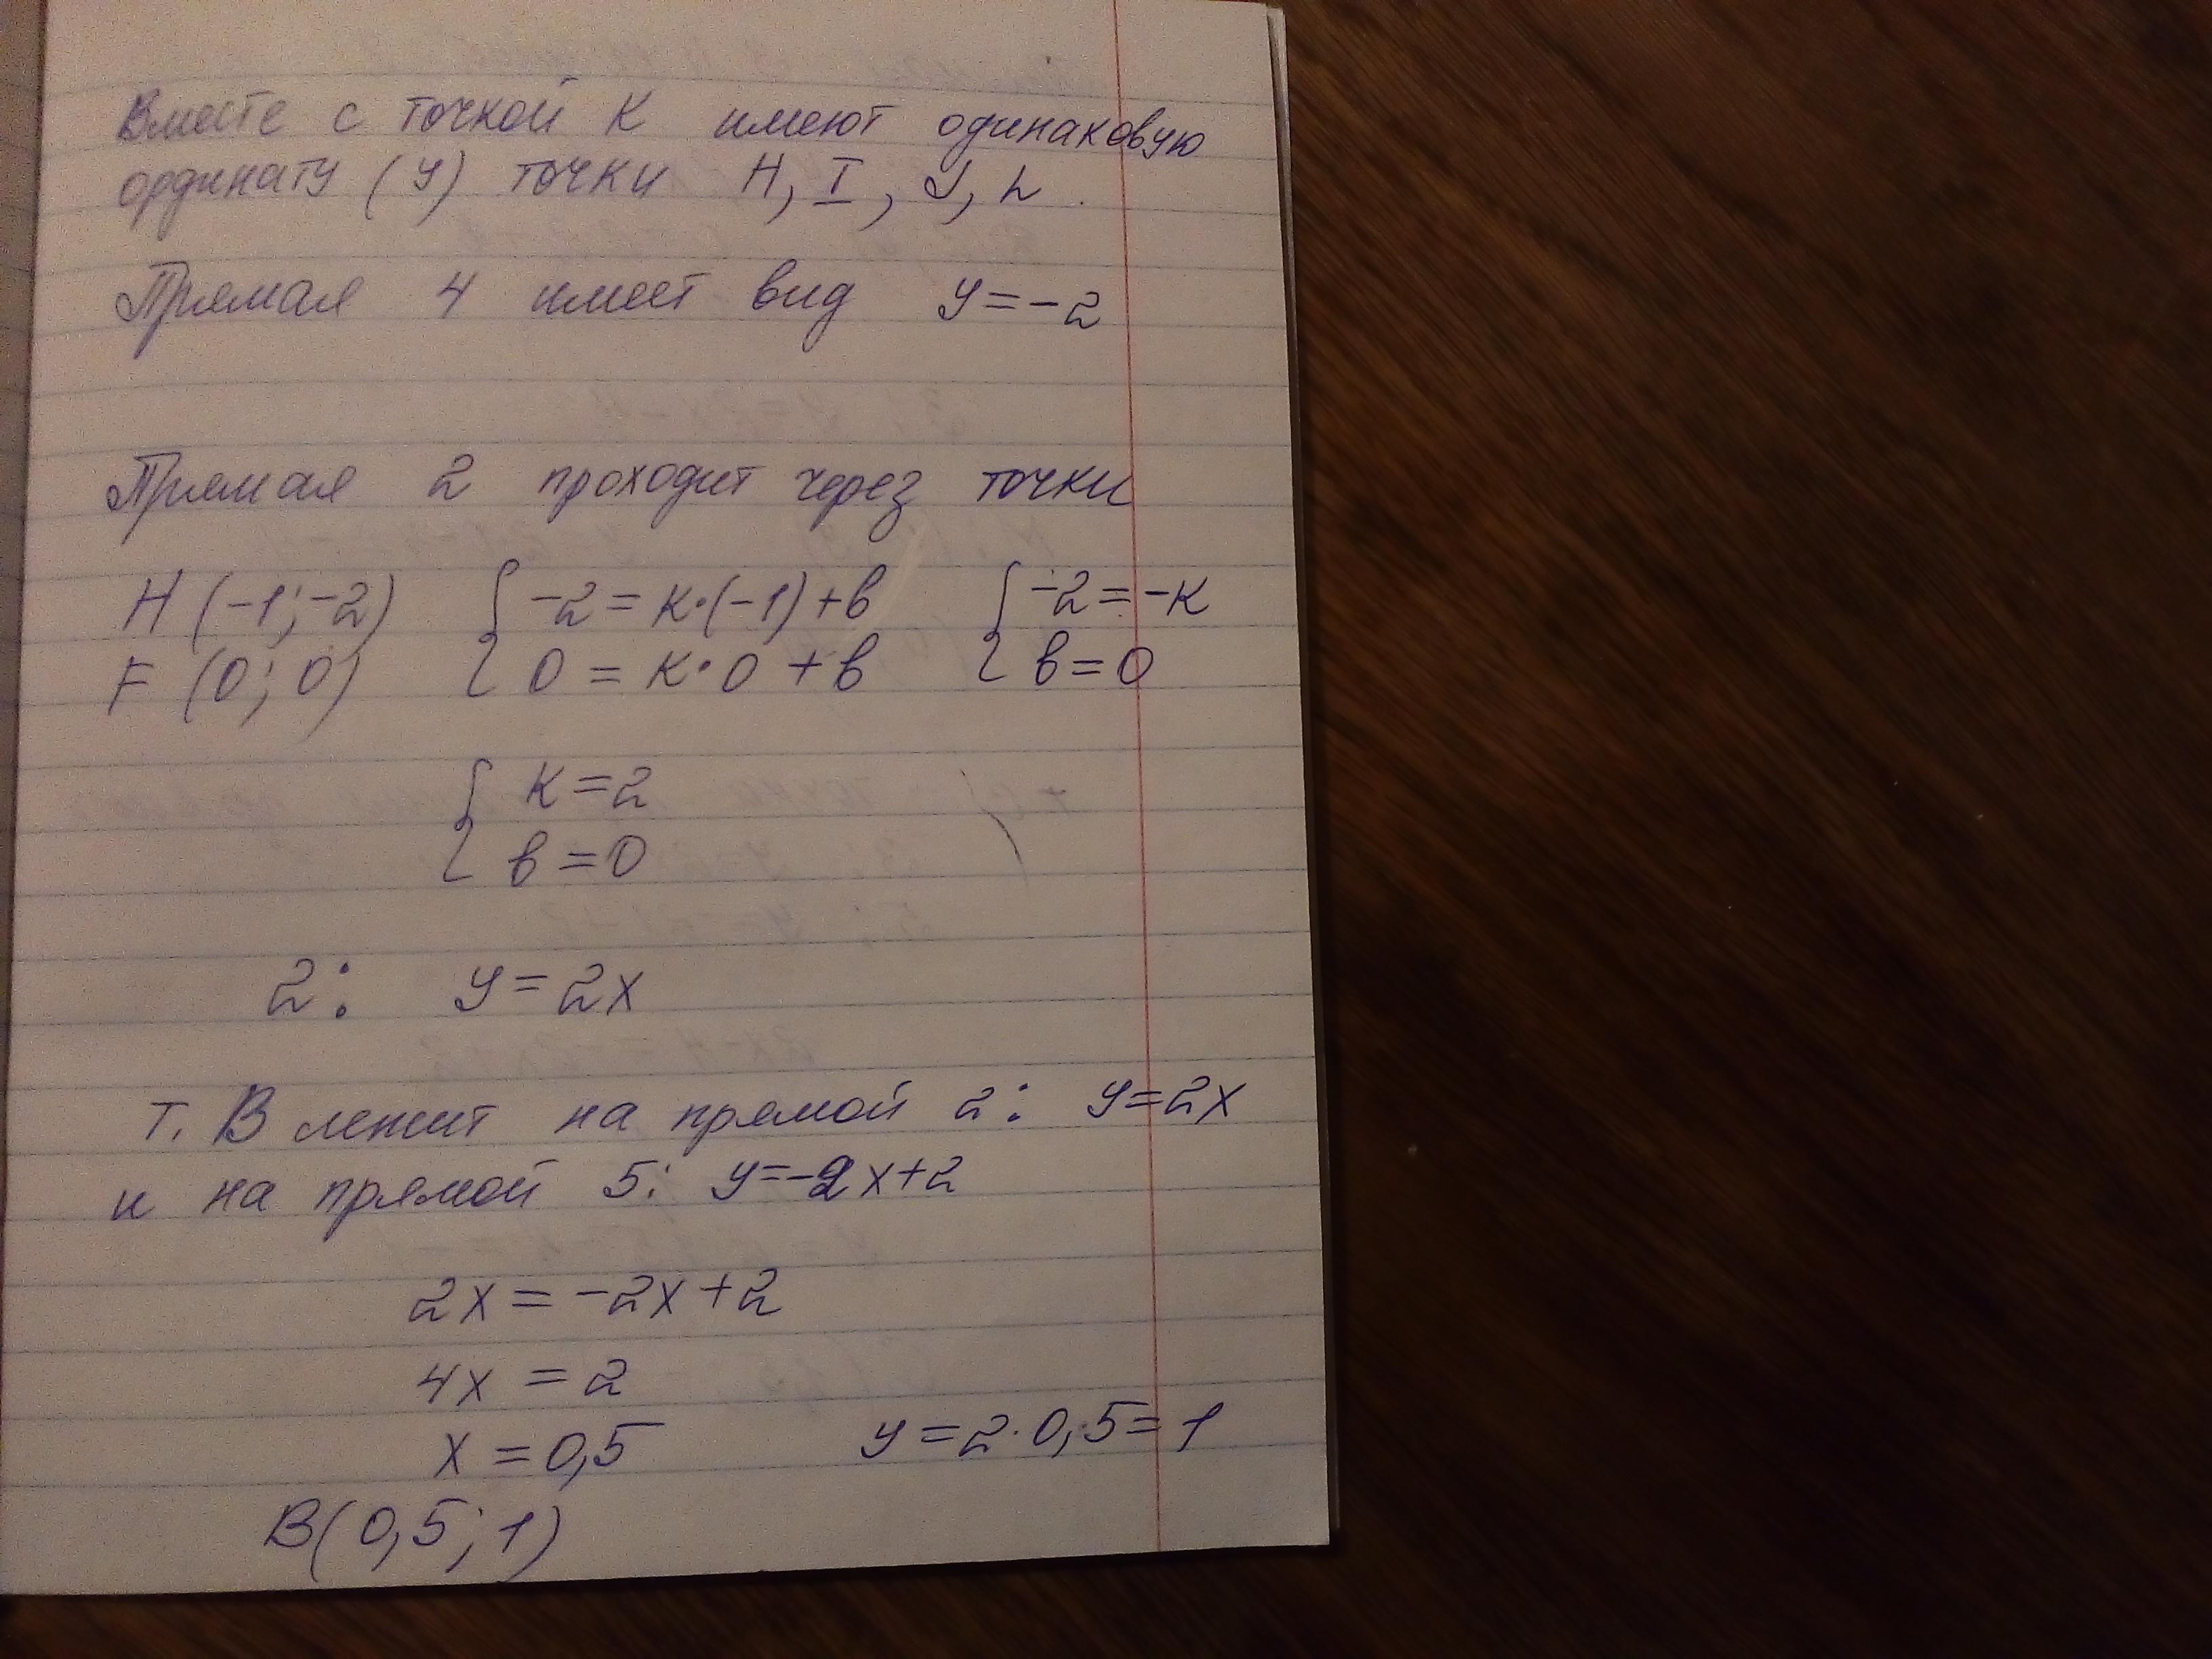 Вместе с точкой К имеют одинаковую
ординату (у) точки H, I, J, L.
Прямая 4 имеет вид у=-2
Прямая 2 проходит через точки
H (-1; -2) { -2 = к·(-1)+в { -2 = -к
F (0; 0) { 0 = к·0 + в { в = 0
{ к = 2
{ в = 0
2: у = 2х
Т. В лежит на прямой 2: у=2х
и на прямой 5: у=-2х+2
2х = -2х+2
4х = 2
х = 0,5 у = 2·0,5=1
В(0,5; 1)